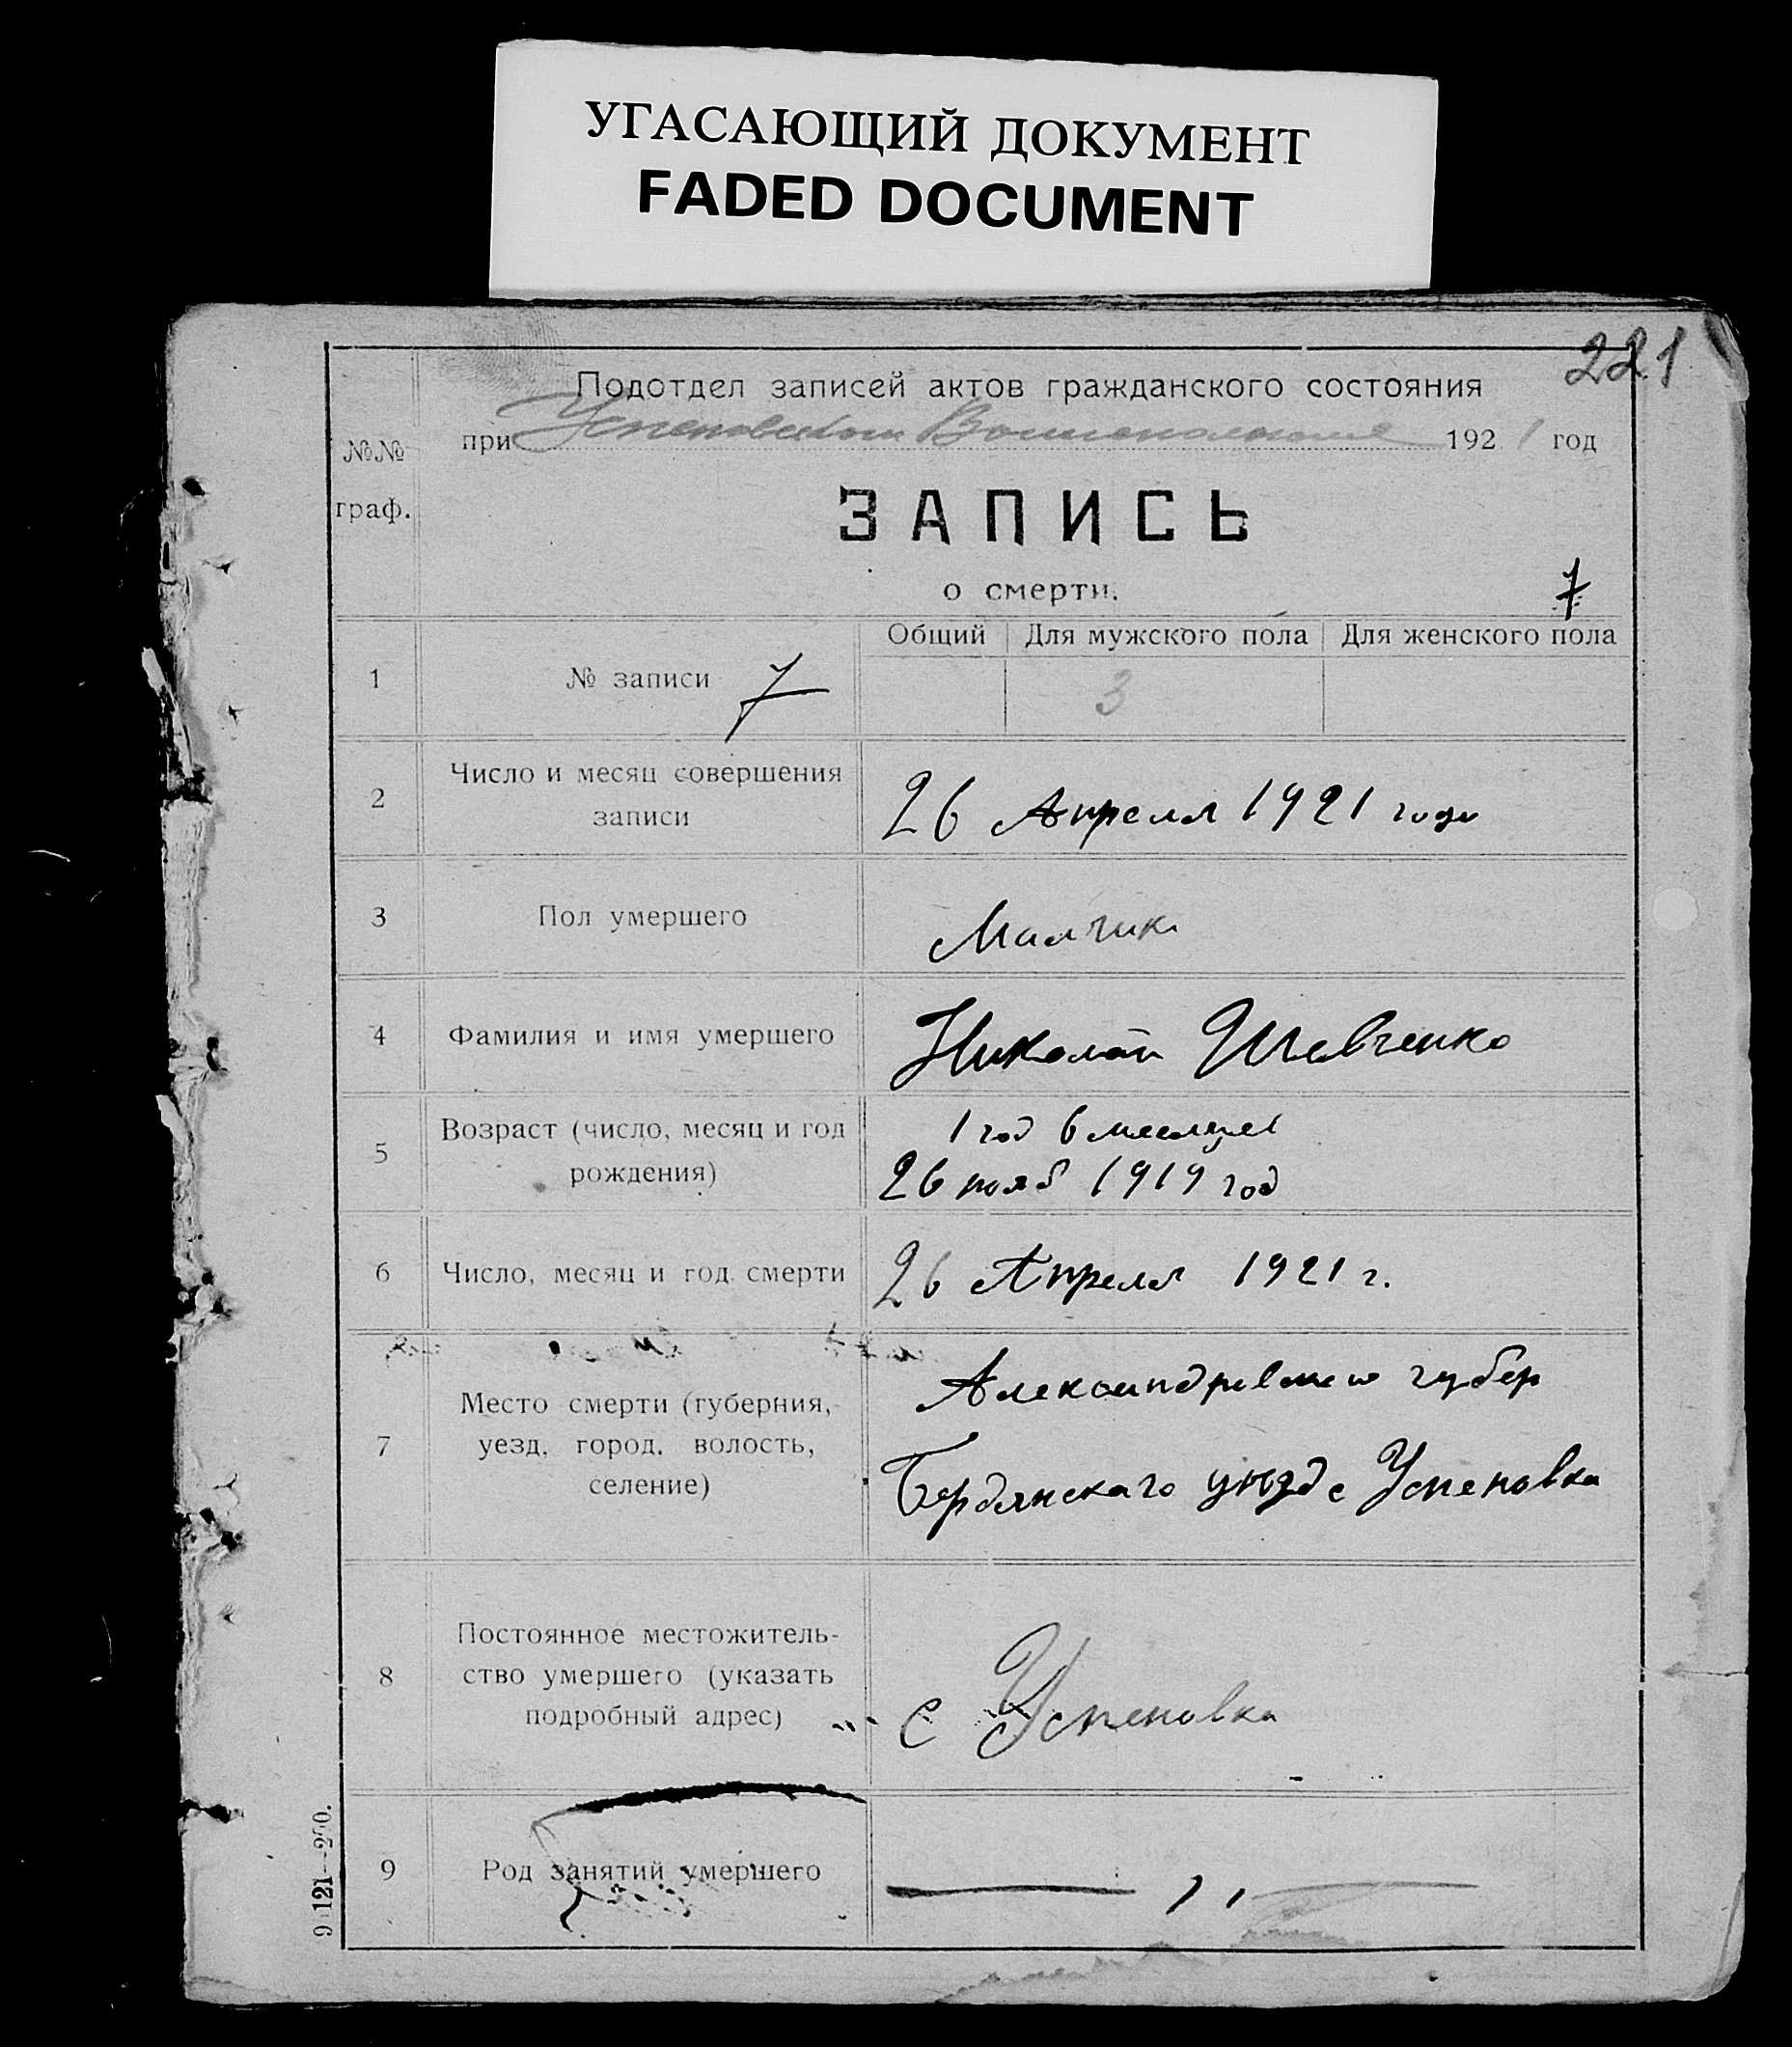 УГАСАЮЩИЙ ДОКУМЕНТ
FADED DOCUMENT
221
Подотдел записей актов гражданского состояния
при Успеновском 1921 год
№№
граф.
ЗАПИСЬ
о смерти.
7
Общий Для мужского пола Для женского пола
1 № записи 7 3
2 Число и месяц совершения
записи
26 Апреля 1921 года
3 Пол умершего Малчик
4 Фамилия и имя умершего Николай Шевченко
5 Возраст (число, месяц и год
рождения)
1 год 6 месяцев
26 нояб 1919 год
6 Число, месяц и год смерти 26 Апреля 1921 г.
7 Место смерти (губерния,
уезд, город, волость,
селение)
губер
Бердянскаго уезд с Успеновка
8 Постоянное местожитель-
ство умершего (указать
подробный адрес)
с Успеновка
9 Род занятий умершего